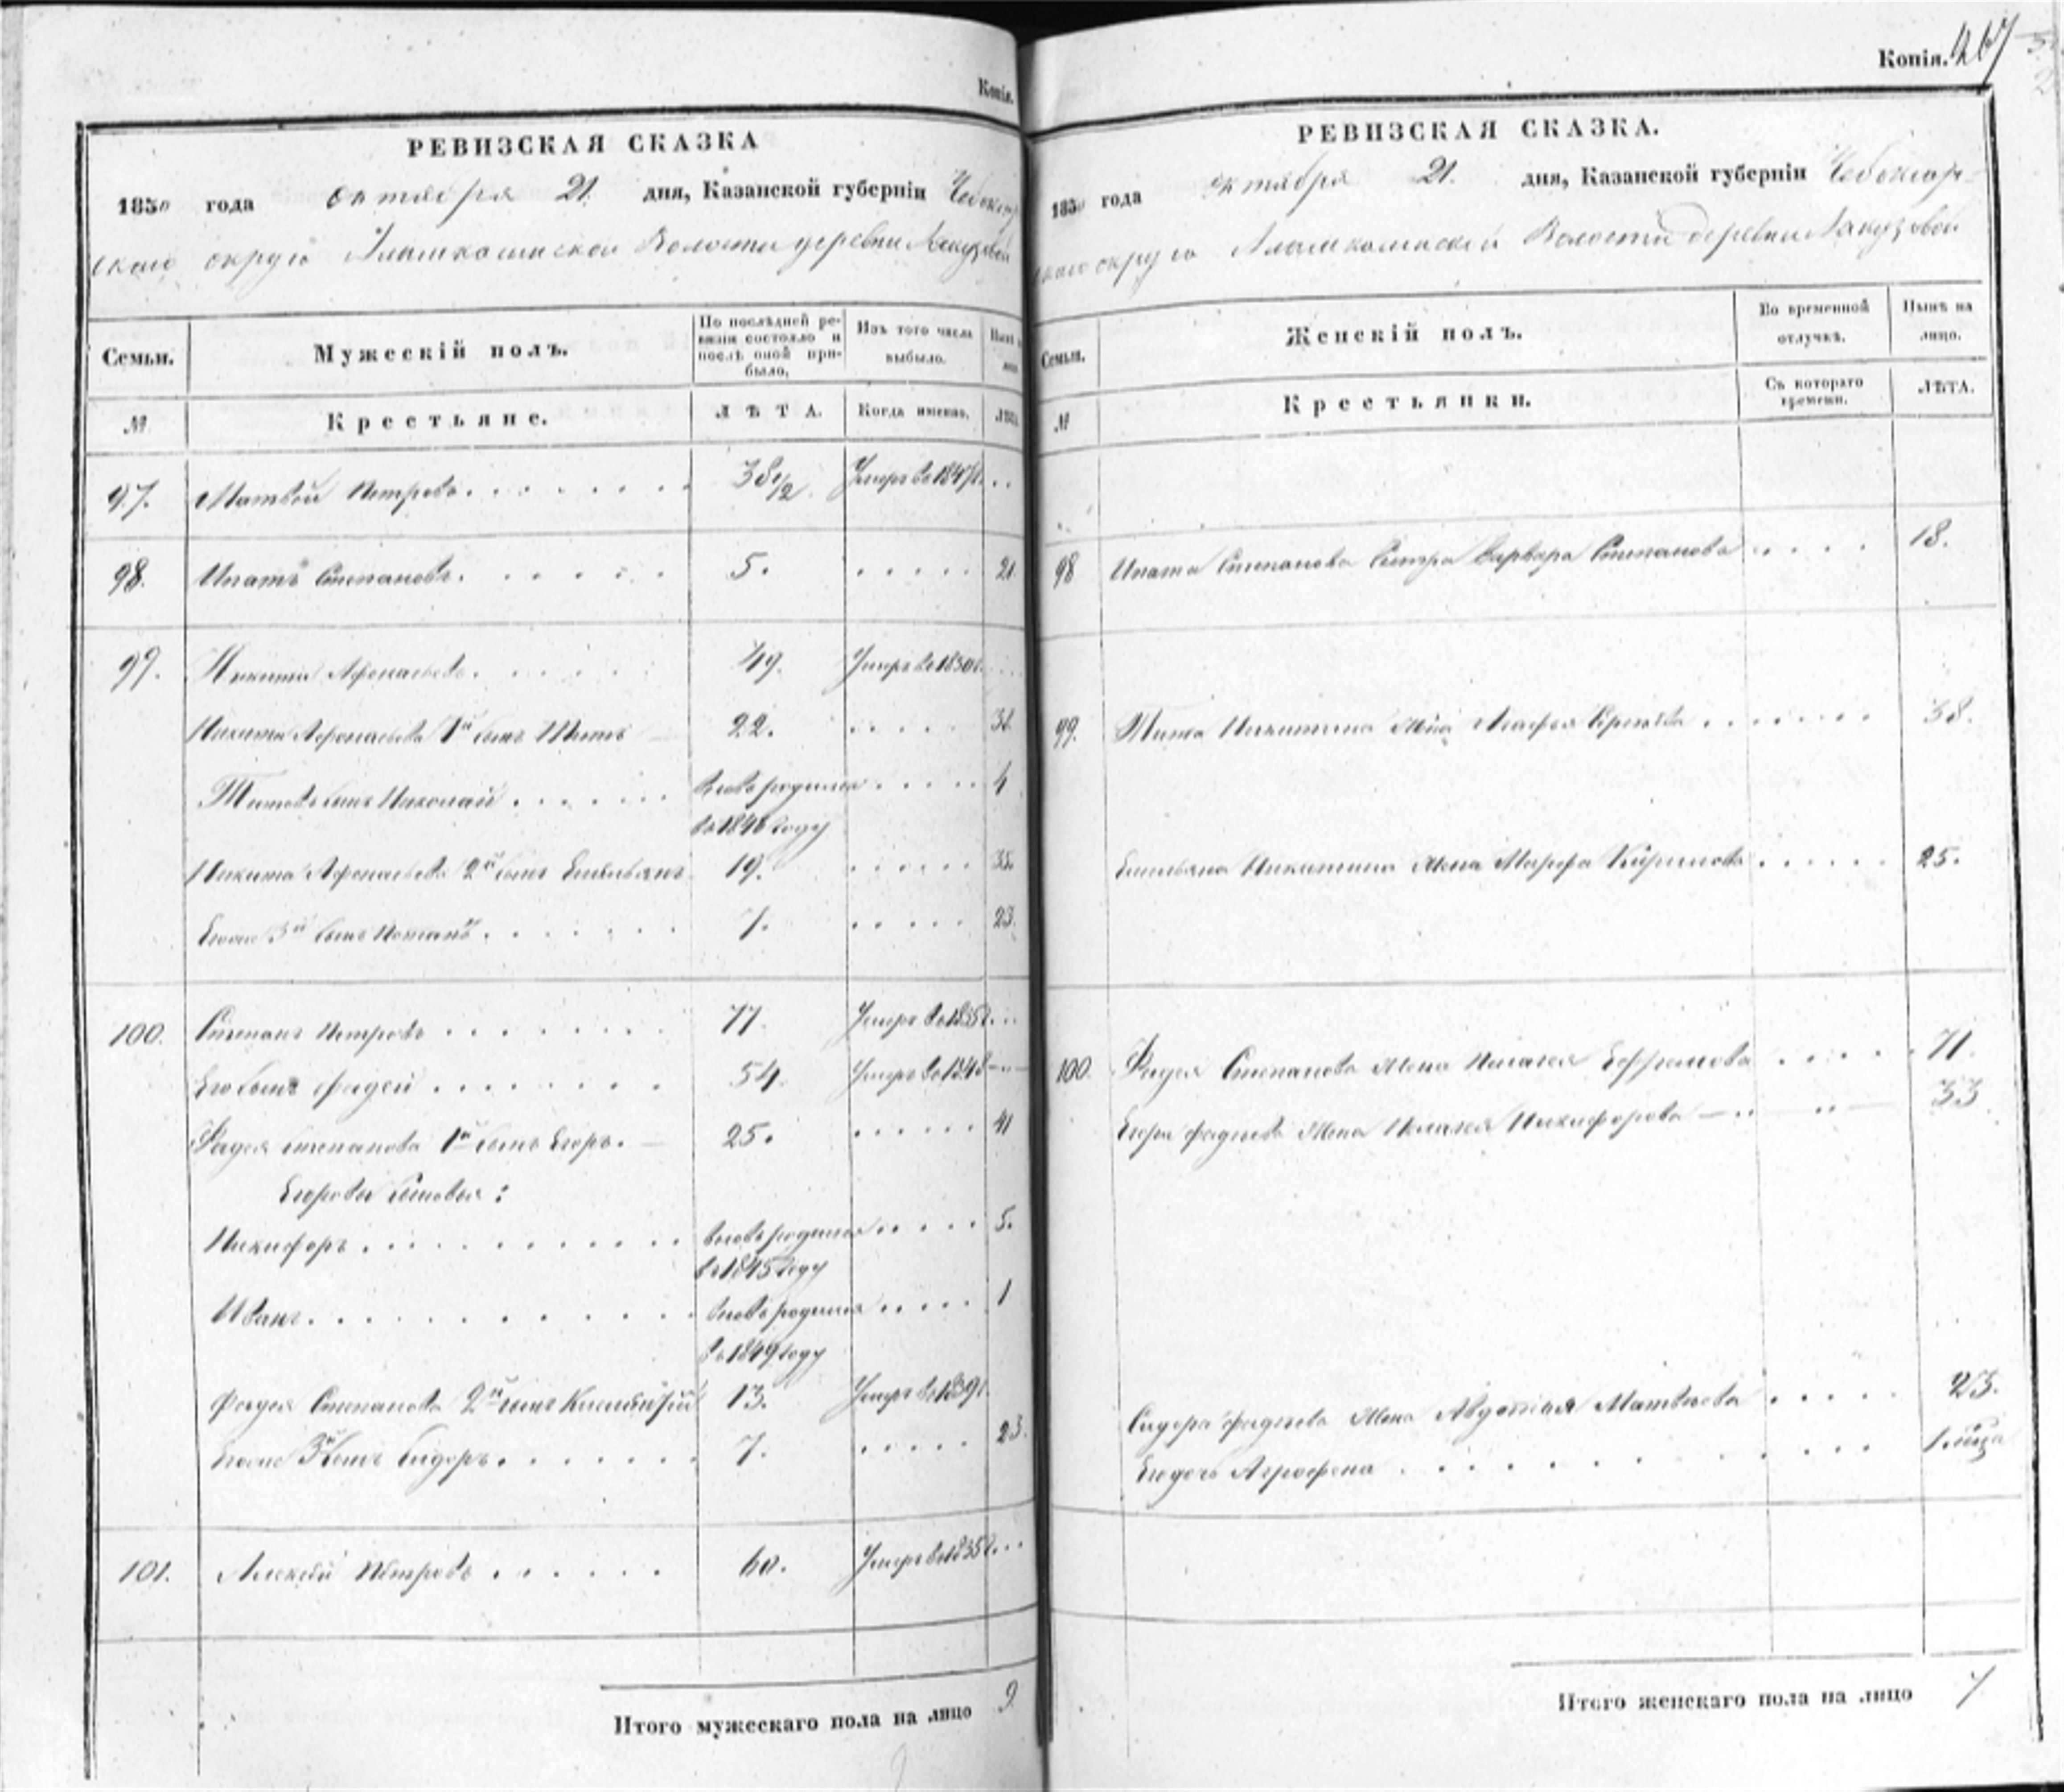 Копія.
РЕВИЗСКАЯ СКАЗКА
1850 года октября 21. дня, Казанской губерніи Чебоксар
скаго округа Волости деревни
Семьи.
Мужескій полъ.
По послѣдней ре-
визіи состояло и
послѣ оной при-
было,
Изъ того числа
выбыло.
№
Крестьяне.
ЛѢТА.
Когда именно.
97. Матвей Петровъ 38 1/2 Умеръ въ
98. Ипатъ Степановъ. 5. 21
99. Никита Афонасьевъ 49. Умеръ въ 1850 г.
Никиты Афонасьева 1й сынъ Титъ 22.
Титовъ сынъ Николай вновь рожденъ 4
въ 1846 году
Никиты Афонасьева 2й сынъ Емельянъ 19. 35.
Его же 3й сынъ 7. 23.
100. Степанъ Петровъ 77. Умеръ въ 1835 г.
Его сынъ Фадей 54. Умеръ въ 1848
Фадея Степанова 1й сынъ Егоръ. 25. 41
Егоровы сыновья:
Никифоръ 5.
въ 1845 году
Иванъ 1
въ 1849 году
Фадея Степанова 2й сынъ 13. Умеръ въ 1839 г.
Его же 3й сынъ Сидоръ 7. 23.
101. Алексей Петровъ 60. Умеръ въ 1835 г.
Итого мужескаго пола на лицо 9
Копія. 267
РЕВИЗСКАЯ СКАЗКА.
1850 года октября 21. дня, Казанской губерніи Чебоксар-
скаго округа Волости деревни
Семьи.
Женскій полъ.
Во временной
отлучкѣ.
Нынѣ на
лицо.
№
Крестьянки.
Съ котораго
времени.
ЛѢТА.
98 Ипата Степанова Сестра Варвара Степанова 18.
99. Тита Никитина жена 38.
Емельяна Никитина жена Марфа Кирилова 25.
100. Фадея Степанова жена Пелагея Ефремова 71.
Егора Фадеева жена Пелагея Никифорова 33
Сидора Фадеева жена Авдотья Матвеева 23.
Его дочь Аграфена
Итого женскаго пола на лицо 7